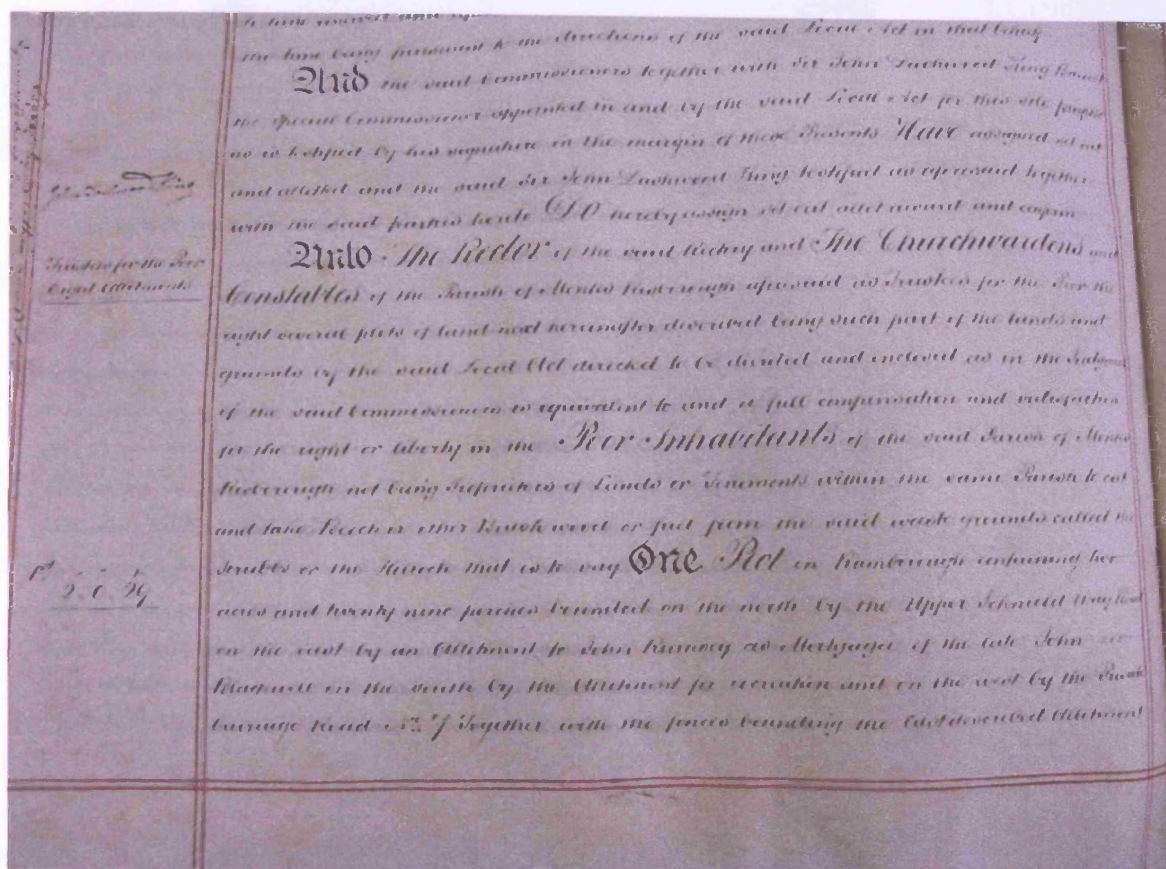 the time being pursuant to the directions of the said Local Act in that behalf
And the said Commissioners together with Sir John Dashwood King Baronet
the Special Commissioner appointed in and by the said Local Act for this sole purpose
as is testified by his signature in the margin of these Presents Have assigned set out
and allotted and the said Sir John Dashwood King testified as aforesaid together
with the said parties hereto Do hereby assign set out allot award and confirm
John Dashwood King
Unto The Rector of the said Rectory and The Churchwardens and
Trustees for the Poor
Eight Allotments
Constables of the Parish of Monks Risborough aforesaid as Trustees for the Poor the
eight several plots of land next hereinafter described being such part of the lands and
grounds by the said Local Act directed to be divided and inclosed as in the Judgment
of the said Commissioners is equivalent to and a full compensation and satisfaction
for the right or liberty in the Poor Inhabitants of the said Parish of Monks
Risborough not being Proprietors of Lands or Tenements within the same Parish to cut
and take Beech or other Bushwood or fuel from the said waste grounds called the
Scrubbs or the that is to say One Plot in containing two
1st
2. 0. 29
acres and twenty nine perches bounded on the north by the Upper Icknield Way Road
on the east by an Allotment to John Rumsey as Mortgagee of the late John
Blackwell on the south by the Allotment for and on the west by the Private
Carriage Road No. 7 Together with the fences bounding the last described Allotment